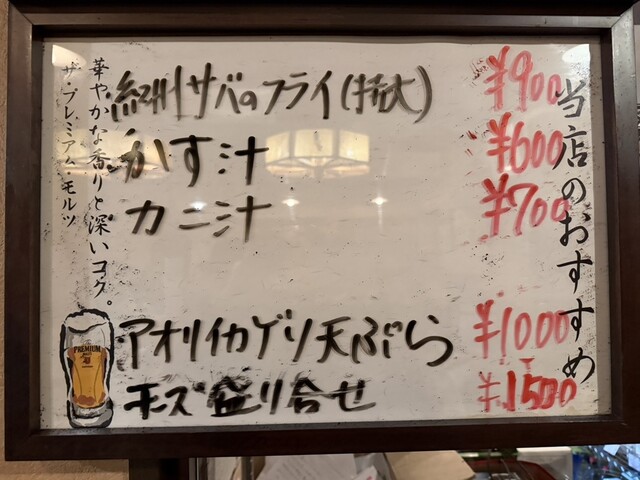 当店のおすすめ
紀州サバのフライ(特大) ¥900
かす汁 ¥600
カニ汁 ¥700
アオリイカゲソ天ぷら ¥1000
チーズ盛り合せ ¥1500
華やかな香りと深いコク。
ザ・プレミアム・モルツ
PREMIUM